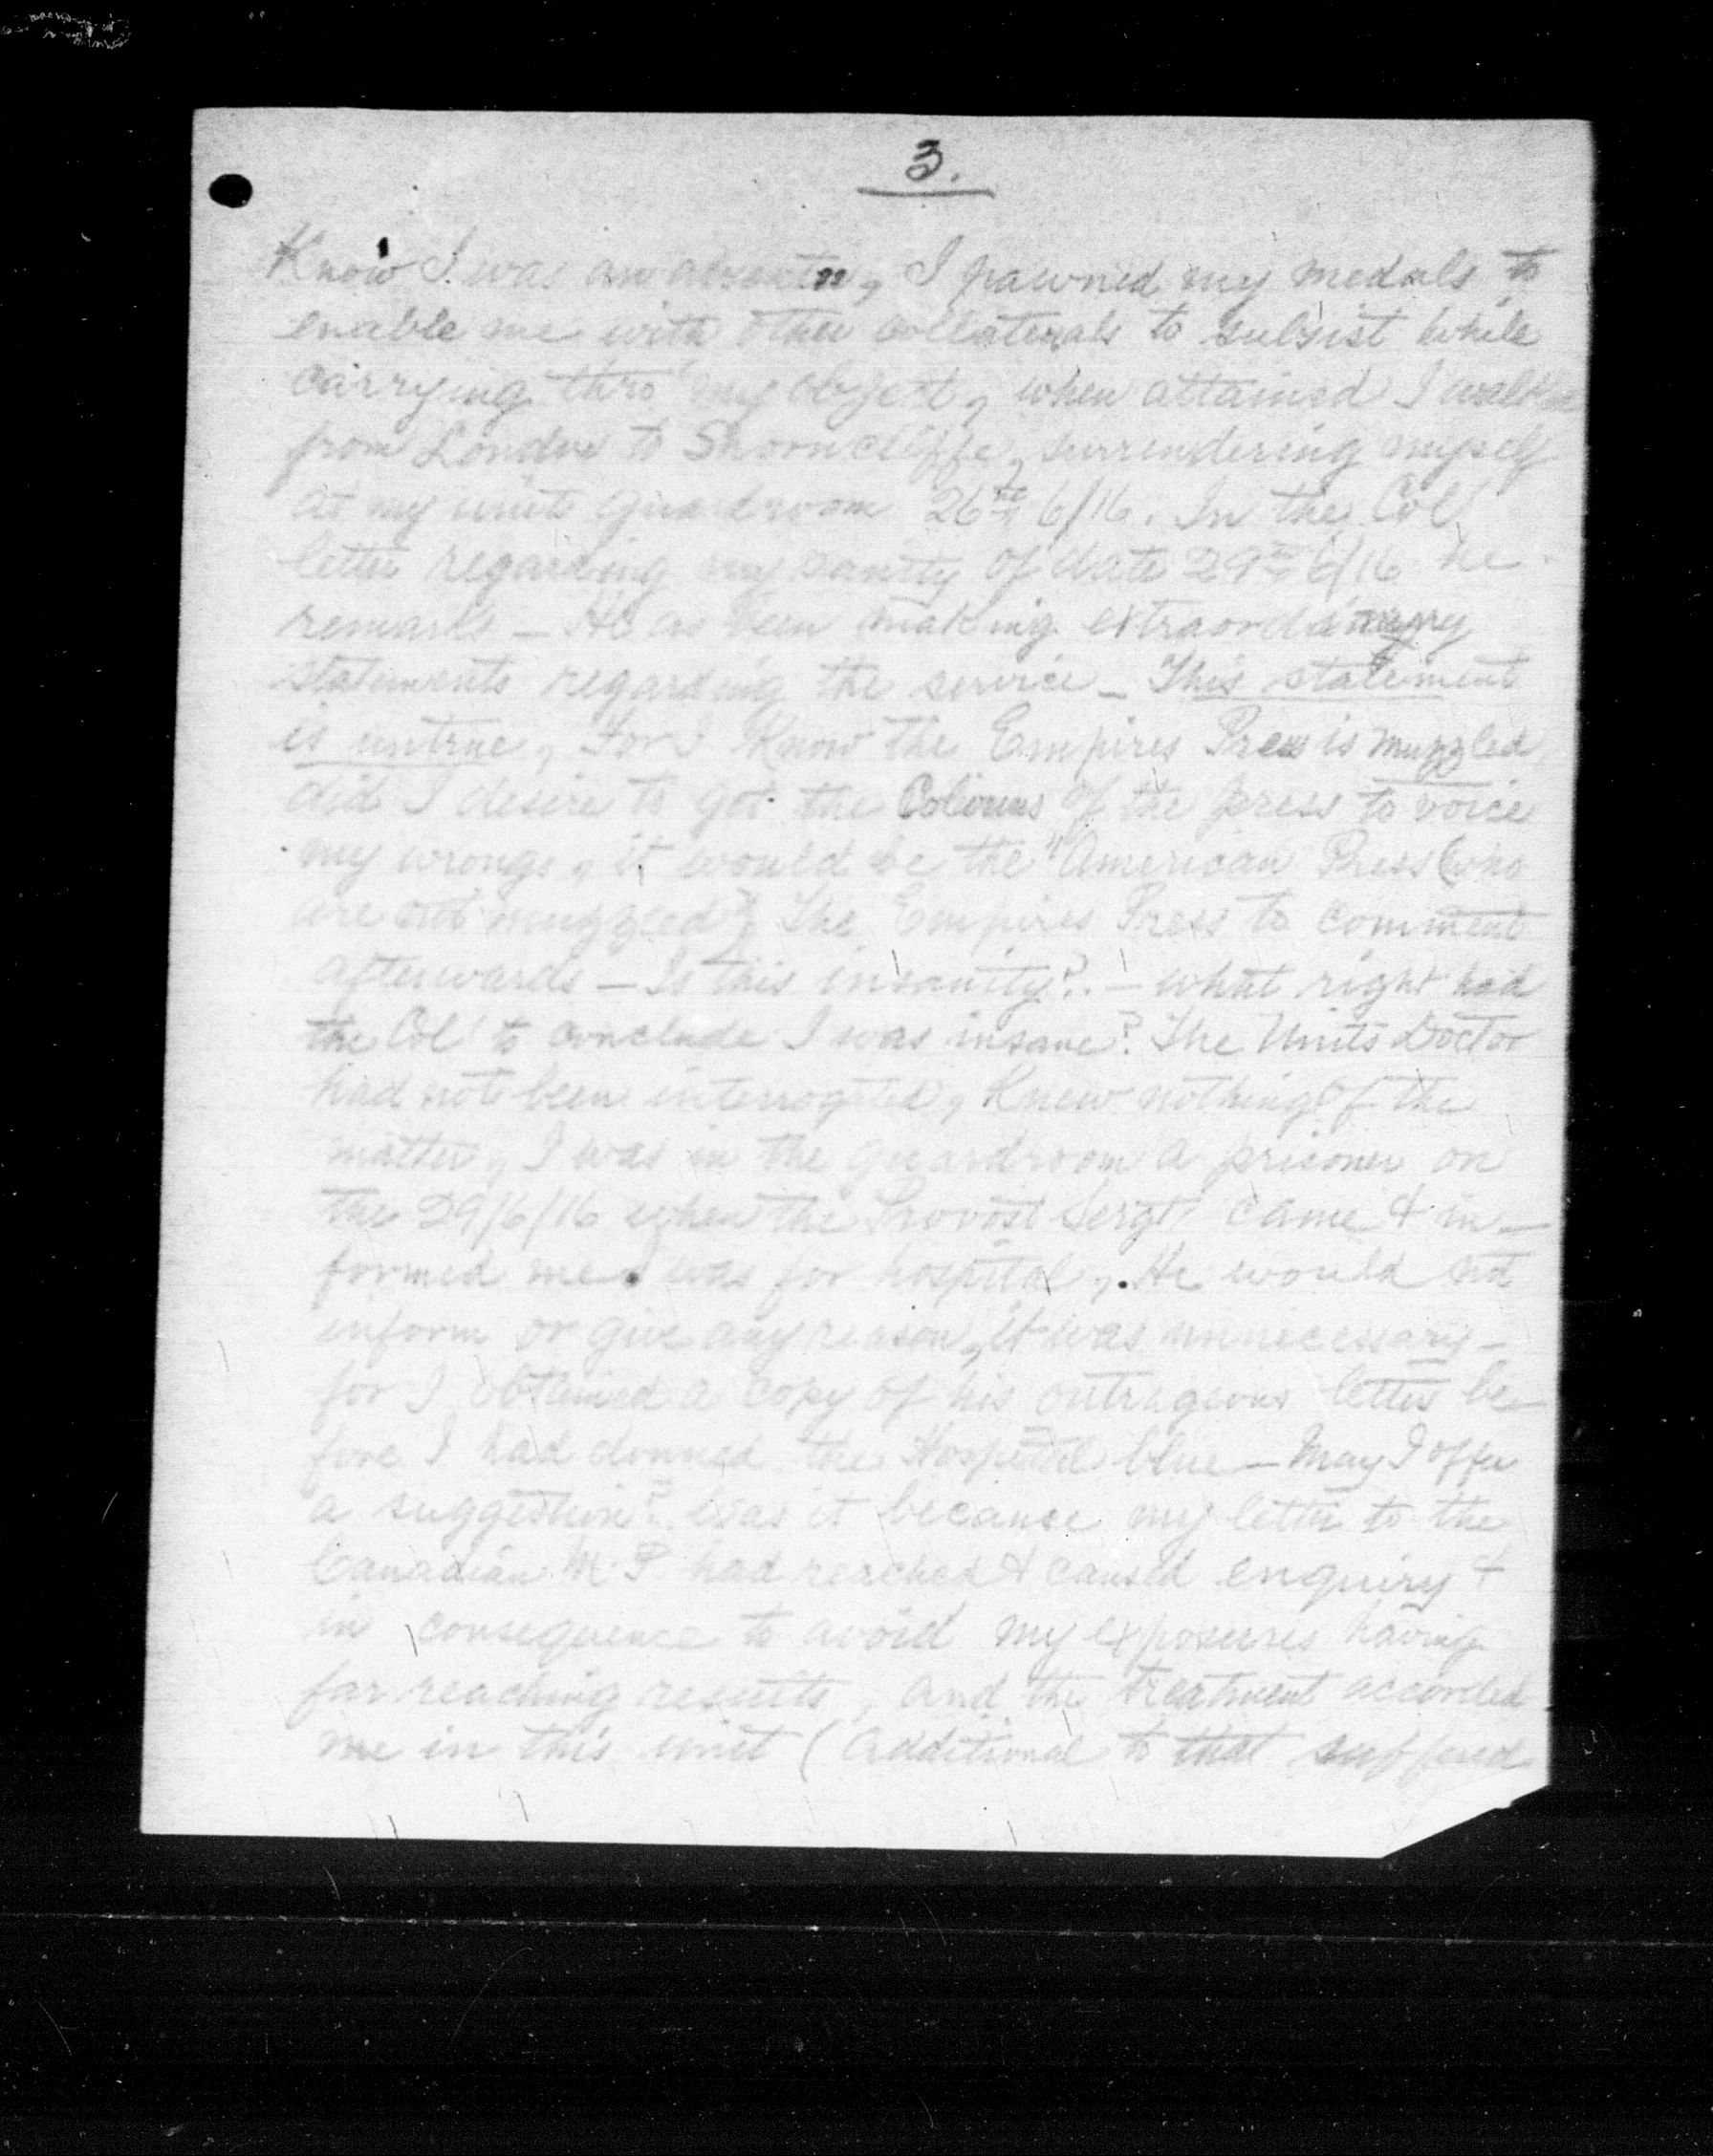 3.
Know I was an absentee, I pawned my medals to
enable me with other collaterals to subsist while
carrying thro' my object, when attained I walked
from London to Shorncliffe, surrendering myself
at my units guardroom 26th 6/16. In the Col'
letter regarding my sanity of date 29th 6/16 he
remarks – He as been making extraordinary
statements regarding the service – This statement
is untrue, For I Know the Empires Press is muzzled
did I desire to get the Coloums of the press to voice
my wrongs, it would be the "American Press (who
are not muzzled) The Empires Press to comment
afterwards – Is this insanity? – what right had
the Col' to conclude I was insane? The Units Doctor
had not been interrogated, Knew nothing of the
matter, I was in the guardroom a prisoner on
the 29/6/16 when the Provost Sergt came & in–
formed me I was for hospital, He would not
inform or give any reason, it was unnecessary –
for I obtained a copy of his outrageous letter be–
fore I had donned the Hospital blue – May I offer
a suggestion? Was it because my letter to the
Canadian M.P. had reached & caused enquiry &
in consequence to avoid my exposures having
far reaching results, and the treatment accorded
me in this unit (additional to that suffered